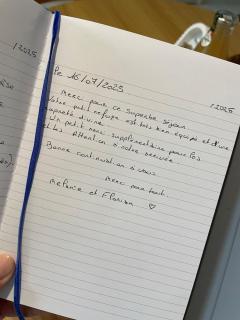 /2025
Le 16/07/2025
/2025
Merci pour ce superbe séjour
Votre petit refuge est très bien équipé et d'une
propreté divine
Un petit merci supplémentaire pour les
et les Attention à notre arrivée
Bonne continuation à vous
Merci pour tout
Melanie et Florian ♡